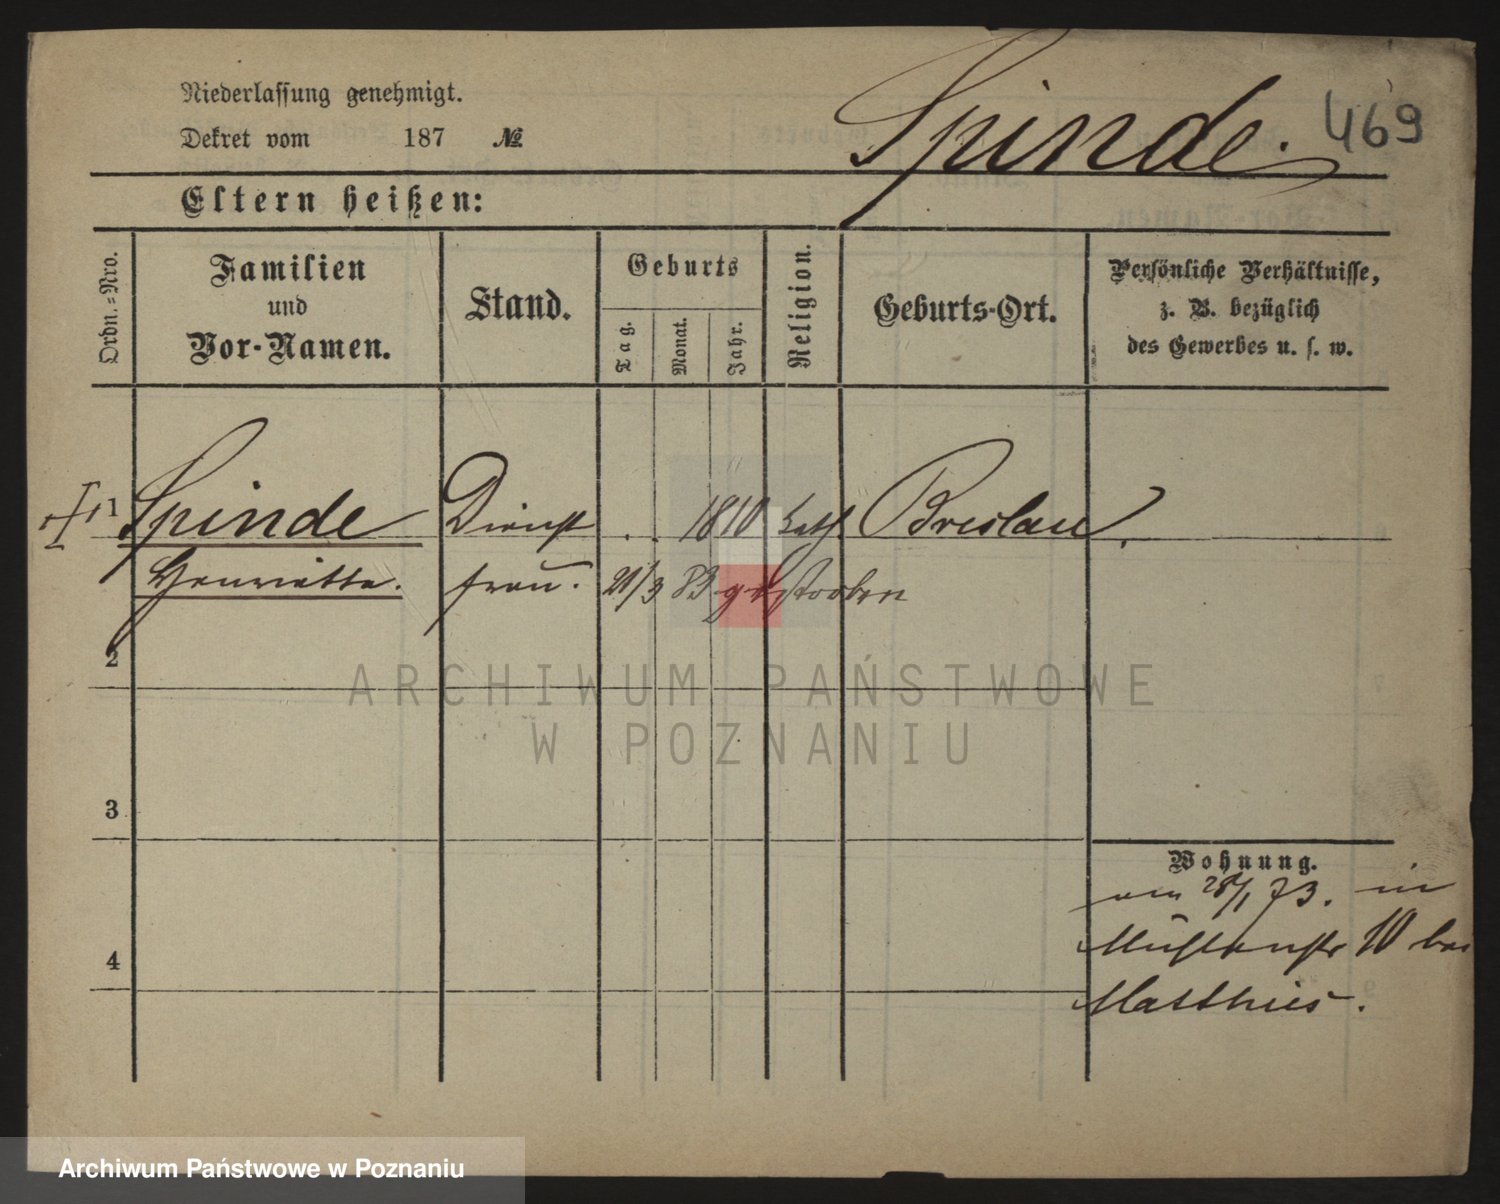 Niederlassung genehmigt.
Dekret vom 187 №
Spinde. 469
Eltern heißen:
Ordn.=Nro.
Familien
und
Vor-Namen.
Stand.
Geburts
Tag.
Monat.
Jahr.
Religion.
Geburts-Ort.
Persönliche Verhältnisse,
z. B. bezüglich
des Gewerbes u. s. w.
1 Spinde Dienst . . 1810 kath. Breslau.
Henriette. frau. 21/3 83 gestorben
2
3
4
Wohnung.
28/1 73. in
10 bei
Matthies.
ARCHIWUM PAŃSTWOWE
W POZNANIU
Archiwum Państwowe w Poznaniu